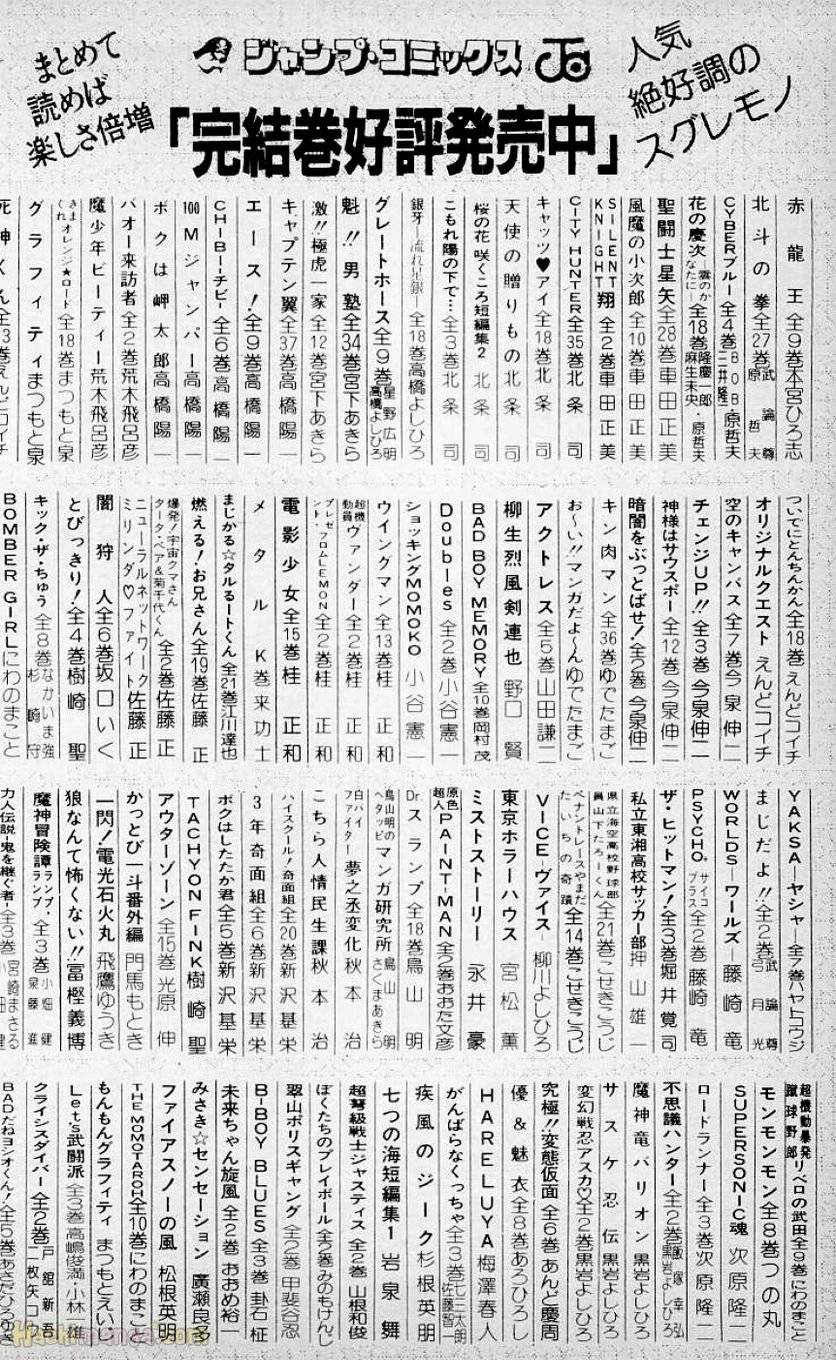 まとめて
読めば
楽しさ倍増
ジャンプ・コミックス
人気
絶好調の
スグレモノ
「完結巻好評発売中」
赤龍王 全9巻 本宮ひろ志
北斗の拳 全27巻 武論尊 原哲夫
CYBERブルー 全4巻 BOB 三井隆一 原哲夫
花の慶次―雲のかなたに― 全18巻 隆慶一郎 麻生未央・原哲夫
聖闘士星矢 全28巻 車田正美
風魔の小次郎 全10巻 車田正美
SILENT KNIGHT翔 全2巻 車田正美
CITY HUNTER 全35巻 北条司
キャッツ♥アイ 全18巻 北条司
天使の贈りもの 北条司
桜の花 咲くころ 短編集2 北条司
こもれ陽の下で… 全3巻 北条司
銀牙―流れ星 銀― 全18巻 高橋よしひろ
グレートホース 全9巻 星野広明 高橋よしひろ
魁!!男塾 全34巻 宮下あきら
激!!極虎一家 全12巻 宮下あきら
キャプテン翼 全37巻 高橋陽一
エース! 全9巻 高橋陽一
CHIBI―チビ― 全6巻 高橋陽一
100Mジャンパー 高橋陽一
ボクは岬太郎 高橋陽一
バオー来訪者 全2巻 荒木飛呂彦
魔少年ビーティー 荒木飛呂彦
きまぐれオレンジ★ロード 全18巻 まつもと泉
グラフィティ まつもと泉
死神くん 全13巻 えんどコイチ
ついでにとんちんかん 全18巻 えんどコイチ
オリジナルクエスト えんどコイチ
空のキャンバス 全7巻 今泉伸二
チェンジUP!! 全3巻 今泉伸二
神様はサウスポー 全12巻 今泉伸二
暗闇をぶっとばせ! 全2巻 今泉伸二
キン肉マン 全36巻 ゆでたまご
お〜い!!マンガだよ〜ん ゆでたまご
アクトレス 全5巻 山田謙二
柳生烈風剣連也 野口賢
BAD BOY MEMORY 全10巻 岡村茂
Doubles 全2巻 小谷憲一
ショッキングMOMOKO 小谷憲一
ウイングマン 全13巻 桂正和
超機動員ヴァンダー 全2巻 桂正和
プレゼント・フロムLEMON 全2巻 桂正和
電影少女 全15巻 桂正和
メタルK 巻来功士
まじかる☆タルるートくん 全21巻 江川達也
燃える!お兄さん 全19巻 佐藤正
爆発!宇宙クマさん タータ・ベア&菊千代くん 全2巻 佐藤正
ニューラルネットワーク ミリンダ♡ファイト 佐藤正
闇狩人 全6巻 坂口いく
とびっきり! 全4巻 樹崎聖
キック・ザ・ちゅう 全8巻 なかいま強 杉崎守
BOMBER GIRL にわのまこと
YAKSA―ヤシャ― 全7巻 ハヤトコウジ
まじだよ!! 全2巻 武論尊 弓月光
WORLDS―ワールズ― 藤崎竜
PSYCHO+ サイコプラス 全2巻 藤崎竜
ザ・ヒットマン! 全3巻 堀井覚司
私立東湘高校サッカー部 押山雄一
県立海空高校野球部員山下たろーくん 全21巻 こせきこうじ
ペナントレースやまだたいちの奇蹟 全14巻 こせきこうじ
VICE―ヴァイス― 柳川よしひろ
東京ホラーハウス 宮松薫
ミストストーリー 永井豪
原色超人PAINT-MAN 全2巻 おおた文彦
Dr.スランプ 全18巻 鳥山明
鳥山明のヘタッピマンガ研究所 鳥山明 さくまあきら
白バイファイター 夢之丞変化 秋本治
こちら人情民生課 秋本治
ハイスクール!奇面組 全20巻 新沢基栄
3年奇面組 全6巻 新沢基栄
ボクはしたたか君 全5巻 新沢基栄
TACHYON FINK 樹崎聖
アウターゾーン 全15巻 光原伸
かっとび一斗番外編 門馬もとき
一閃!電光石火丸 飛鷹ゆうき
狼なんて怖くない!! 冨樫義博
魔神冒険譚ランプ・ランプ 全3巻 小畑健 泉藤進
力人伝説―鬼を継ぐ者― 全3巻 宮崎まさる 小畑健
超機動暴発蹴球野郎 リベロの武田 全9巻 にわのまこと
モンモンモン 全8巻 つの丸
SUPERSONIC魂 次原隆二
ロードランナー 全3巻 次原隆二
不思議ハンター 全2巻 飯塚幸弘 黒岩よしひろ
魔神竜バリオン 黒岩よしひろ
サスケ忍伝 黒岩よしひろ
変幻戦忍アスカ♡ 全2巻 黒岩よしひろ
究極!!変態仮面 全6巻 あんど慶周
優&魅衣 全8巻 あろひろし
HARELUYA 梅澤春人
がんばらなくっちゃ 全3巻 七三太朗 佐藤智一
疾風のジーク 杉根英朋
七つの海 短編集1 岩泉舞
超弩級戦士ジャスティス 全2巻 山根和俊
ぼくたちのプレイボール 全2巻 みのもけんじ
翠山ポリスギャング 全2巻 甲斐谷忍
B-BOY BLUES 全3巻 卦石柾
未来ちゃん旋風 全2巻 おおめ裕一
みさき☆センセーション 廣瀬良多
ファイアスノーの風 松根英明
THE MOMOTAROH 全10巻 にわのまこと
もんもんグラフィティ まつもとえいし
Let's武闘派 全3巻 高嶋俊満 小林進
クライシスダイバー 全2巻 戸舘新吾 二枚矢コウ
BADだねヨシオくん! 全5巻 あさだひろゆき